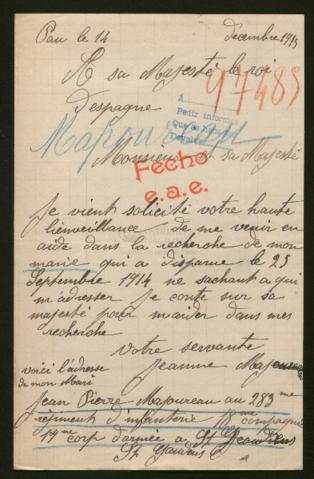 Pau le 14 decembre 1915
A sa Majesté le roi
d'espagne
97485
A
Petiz informe
que se
Mapoureau
Monsieur sa Majesté
Fecho
e.a.e.
Je vient solicité votre haute
bienveillance de me venir en
aide dans la recherche de mon
marie qui a disparue le 25
Septembre 1914 ne sachant a qui
m'adresser je conte sur sa
majesté pour m'aider dans mes
recherche
Votre servante
Jeanne Mapoureau
voici l'adresse
de mon Mari
Jean Pierre Mapoureau au 283me
régiment d'infanterie 18me compagnie
19me corp d'armée a St Gaudens
St Gaudens